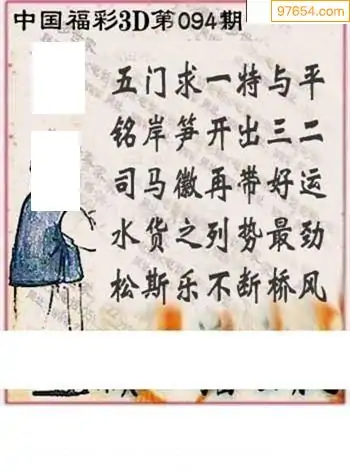 中国福彩3D第094期
97654.com
五门求一特与平
铭岸笋开出三二
司马徽再带好运
水货之列势最劲
松斯乐不断桥风